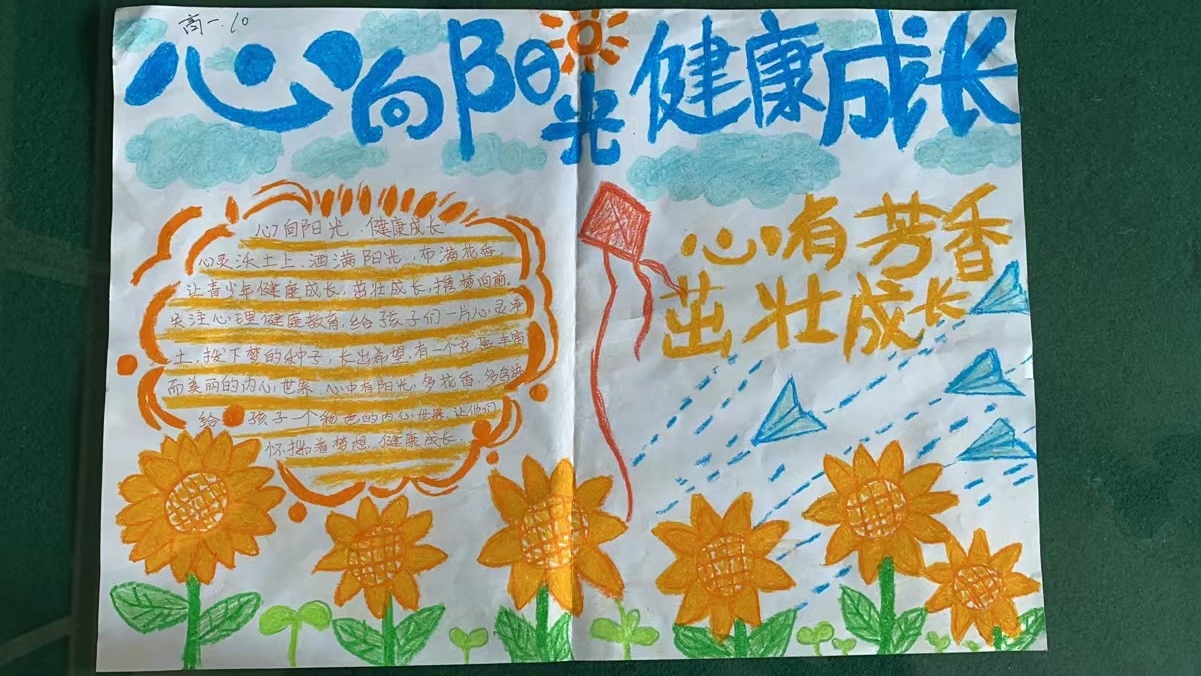 高一.10
心向阳光健康成长
心向阳光.健康成长
心灵沃土上.洒满阳光.布满花香,
让青少年健康成长,茁壮成长,携梦向前.
关注心理健康教育,给孩子们一片心灵净
土.按下梦的种子,长出希望.有一个充盈丰富
而美丽的内心世界.心中有阳光.多花香.多鸟语
给孩子一个绚色的内心世界.让他们
怀揣着梦想.健康成长.
心有芳香
茁壮成长